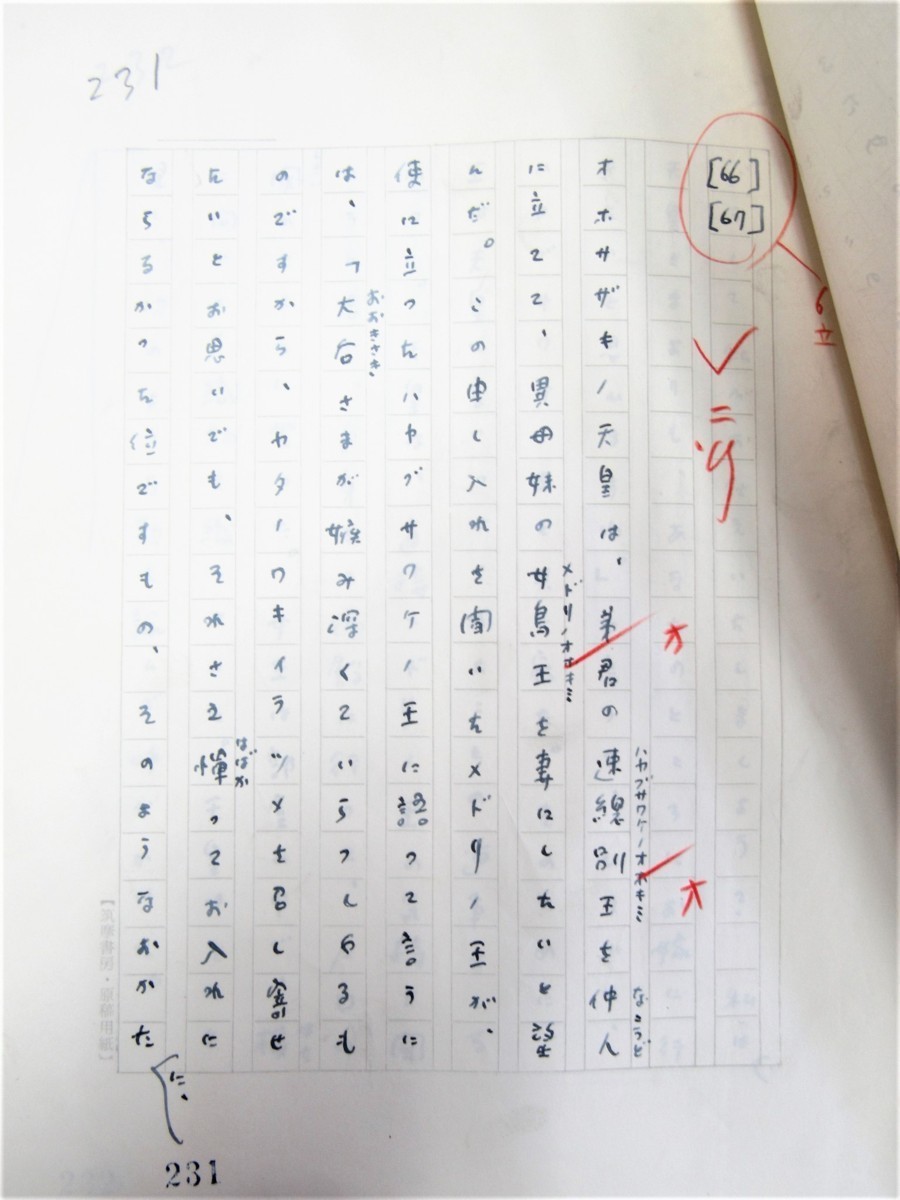 231
[66]
[67]
6
オホサザキノ天皇は、弟君の速總別王を仲人
ハヤブサワケノオホキミ
なこうど
オ
に立てて、異母妹の女鳥王を妻にしたいと望
メドリノオホキミ
オ
んだ。この申し入れを聞いたメドリノ王が、
使に立ったハヤブサワケノ王に語って言うに
は、「大后さまが嫉み深くていらっしゃるも
おおきさき
のですから、ヤタノワキイラツメを召し寄せ
たいとお思いでも、それさえ憚ってお入れに
はばか
ならなかった位ですもの、そのようなおかた
に、
【筑摩書房・原稿用紙】
231